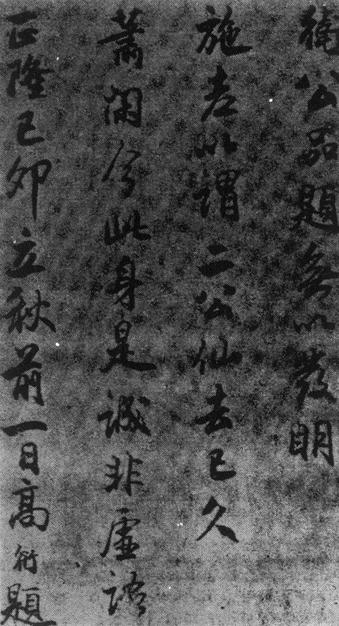 衛公品題無以發明
施老以謂二公仙去已久
蕭閑今此身是誠非虛語
正隆己卯立秋前一日高衎題